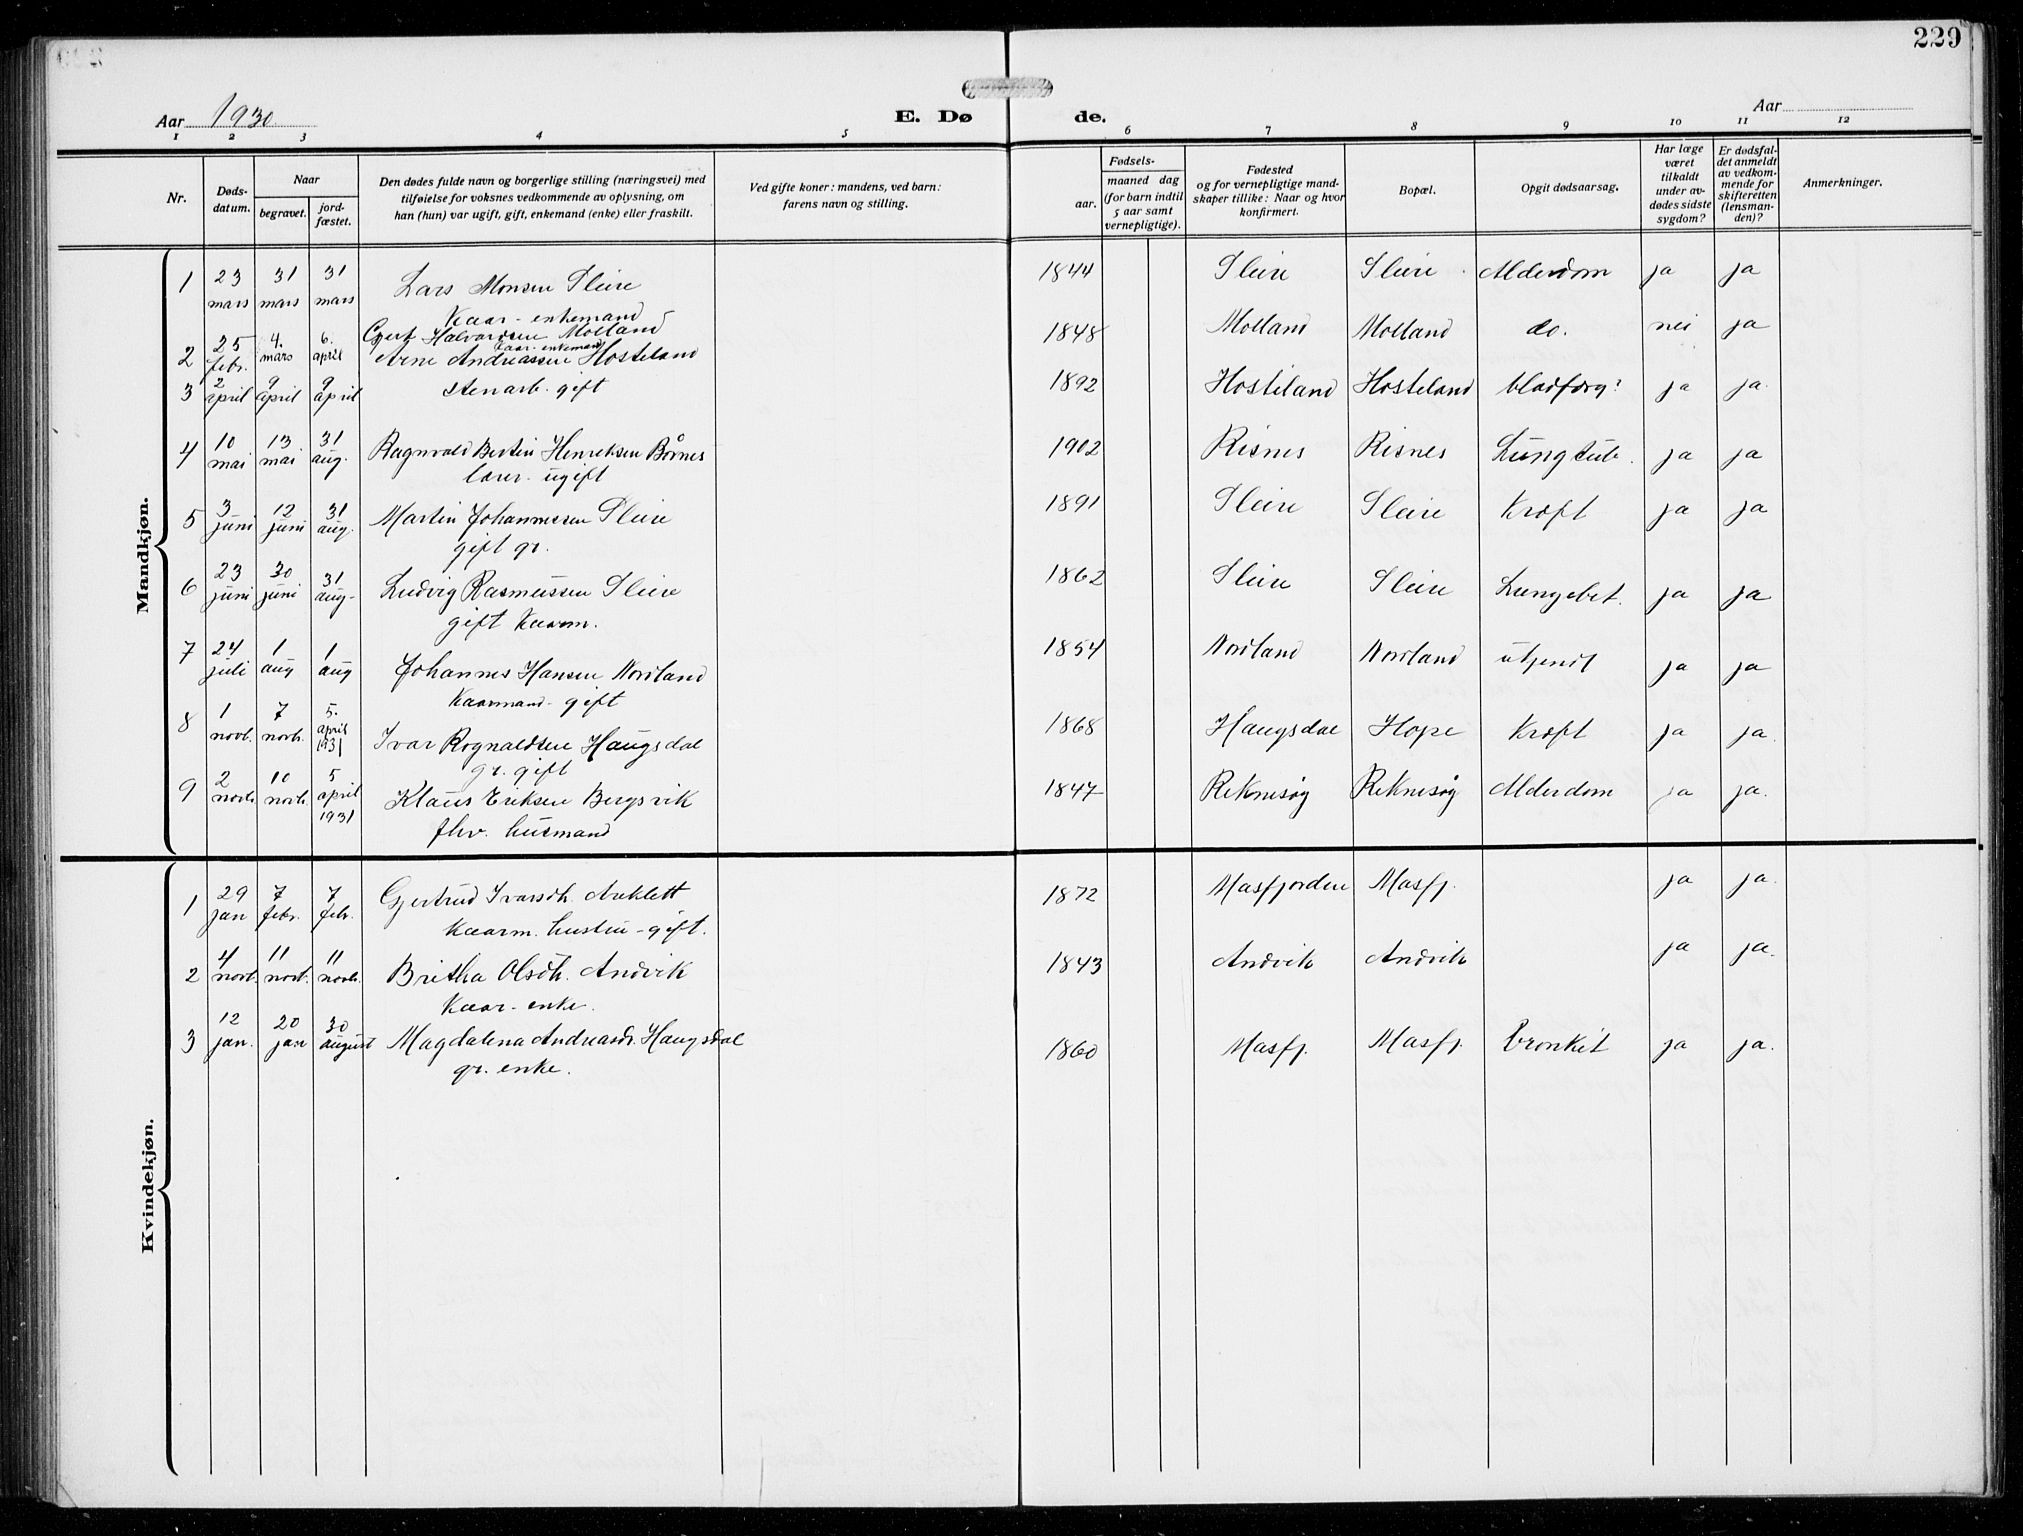 229
Aar 1930
E. Døde.
Aar
1 2 3 4 5 6 7 8 9 10 11 12
Nr.
Døds-
datum.
Naar
begravet.
jord-
fæstet.
Den dødes fulde navn og borgerlige stilling (næringsvei) med
tilføielse for voksnes vedkommende av oplysning, om
han (hun) var ugift, gift, enkemand (enke) eller fraskilt.
Ved gifte koner: mandens, ved barn:
farens navn og stilling.
Fødsels-
aar.
maaned dag
(for barn indtil
5 aar samt
vernepligtige).
Fødested
og for vernepligtige mand-
skaper tillike: Naar og hvor
konfirmert.
Bopæl.
Opgit dødsaarsag.
Har læge
været
tilkaldt
under av-
dødes sidste
sygdom?
Er dødsfal-
det anmeldt
av vedkom-
mende for
skifteretten
(lensman-
den)?
Anmerkninger.
Mandkjøn.
1 23 mars 31 mars 31 mars Lars Monsen Sleire 1844 Sleire Sleire Alderdom ja ja
Kaar-enkemand
2 25 febr. 4. mars 6. april Gjert Halvardsen Molland 1848 Molland Molland do. nei ja
Kaar-enkemand
3 2 april 9 april 9 april Arne Andreassen Hosteland 1892 Hosteland Hosteland blodforg? ja ja
stenarb. gift
4 10 mai 13 mai 31 aug. Ragnvald Bertin Henriksen Børnes 1902 Risnes Risnes Lungtub. ja ja
lærer. ugift
5 3 juni 12 juni 31 aug. Martin Johannessen Sleire 1891 Sleire Sleire Kræft ja ja
gift gr.
6 23 juni 30 juni 31 aug. Ludvig Rasmussen Sleire 1862 Sleire Sleire Lungebet. ja ja
gift Kaarm.
7 24 juli 1 aug 1 aug Johannes Hansen Nordland 1854 Nordland Nordland utjendt ja ja
Kaarmand-gift
8 1 novb. 7 novb. 5. april 1931 Ivar Rognaldsen Haugsdal 1868 Haugsdal Hope Kræft ja ja.
gr. gift
9 2 novb. 10 novb. 5 april 1931 Klaus Eriksen Bergsvik 1847 Reknesøy Reknesøy Alderdom ja ja.
fhv. husmand
Kvindekjøn.
1 29 jan 7 febr. 7 febr. Gjertrud Ivarsdh. Areklett 1872 Masfjorden Masfj. ja ja.
Kaarm. hustru-gift.
2 4 novb. 11 novb. 11 novb. Britha Olsdh. Andvik 1843 Andvik Andvik ja ja.
Kaar-enke.
3 12 jan. 20 jan 30 august Magdalena Andreasdr. Haugsdal 1860 Masfj. Masfj. bronkit ja ja.
gr. enke.